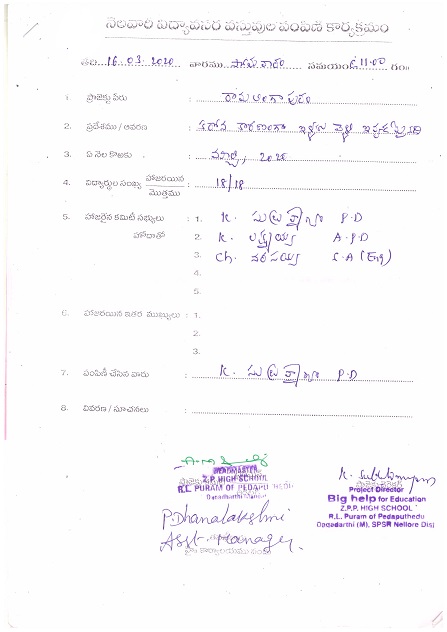 నెలవారి విద్యావసర వస్తువుల పంపిణి కార్యక్రమం
తేది 16.03.2020 వారము సోమవారం సమయం 11-00 గం॥
1. ప్రాజెక్టు పేరు : రామలింగాపురం
2. ప్రదేశము / ఆవరణ : కరోనా కారణంగా
3. ఏ నెల కొఱకు : మార్చి, 2020
4. విద్యార్థుల సంఖ్య హాజరయిన / మొత్తము : 18/18
5. హాజరైన కమిటీ సభ్యులు : 1. K. సుబ్రహ్మణ్యం P.D
హోదాతో 2. K. లక్ష్మయ్య A.P.D
3. Ch. నరసయ్య L.A (Eng)
4.
5.
6. హాజరయిన ఇతర ముఖ్యులు : 1.
2.
3.
7. పంపిణీ చేసిన వారు : K. సుబ్రహ్మణ్యం P.D
8. వివరణ / సూచనలు :
HEADMASTER
Z.P. HIGH SCHOOL
R.L. PURAM OF PEDAPUTHEDU
Dagadarthi Mandal
P. Dhanalakshmi
Asst. Manager
K. Subramanyam
Project Director
Big help for Education
Z.P.P. HIGH SCHOOL
R.L. Puram of Pedaputhedu
Dagadarthi (M), SPSR Nellore Dist